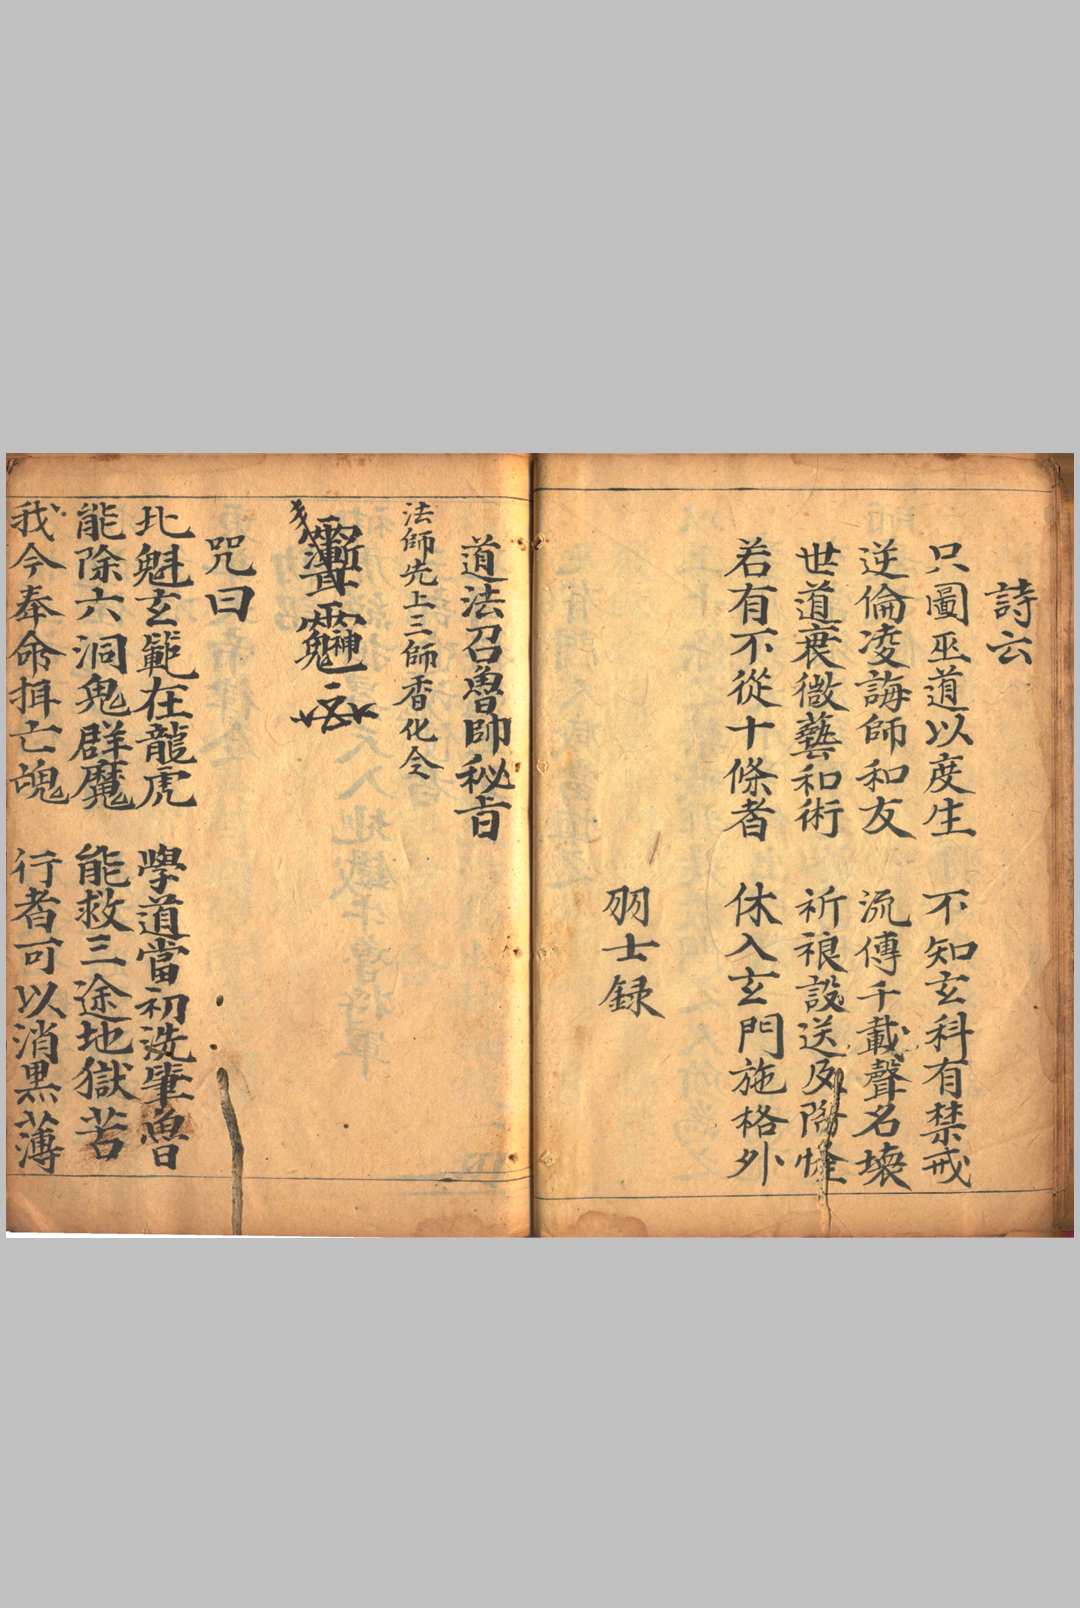 詩云
只圖巫道以度生　不知玄科有禁戒
逆倫凌誨師和友　流傳千載聲名壞
世道衰微藝和術　祈禳設送反陷怪
若有不從十條者　休入玄門施格外
羽士録
道法召魯帥秘旨
法師先上三師香化令
咒曰
北魁玄範在龍虎　學道當初洗肇魯
能除六洞鬼群魔　能救三途地獄苦
我今奉命揖亡魂　行者可以消黑薄